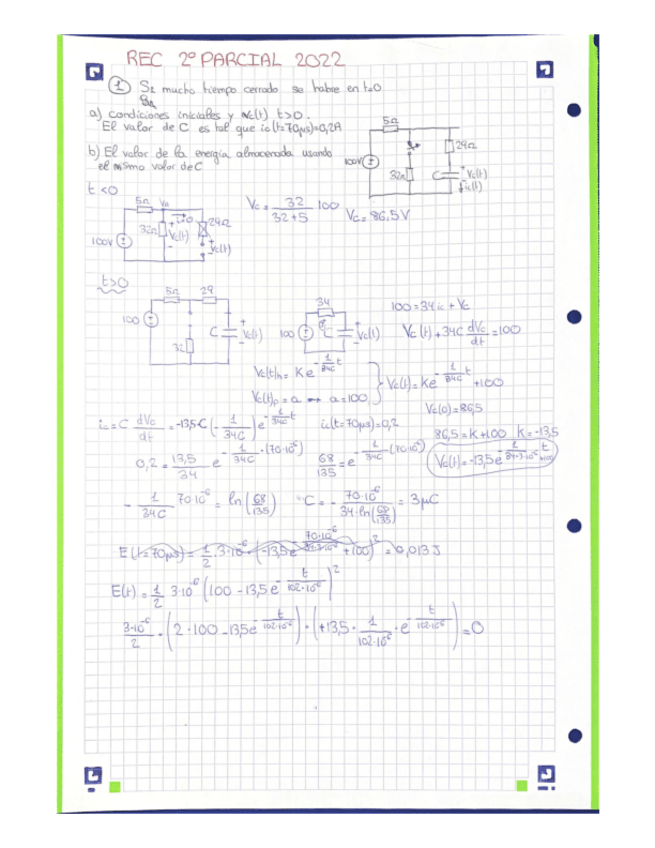 REC 2º PARCIAL 2022
① Si mucho tiempo cerrado se habre en t=0
a) condiciones iniciales y Vc(t) t>0.
El valor de C es tal que ic(t=70μs)=0,2A
b) El valor de la energía almacenada usando
el mismo valor de C
5Ω
29Ω
100V
32Ω
C
+ Vc(t)
ic(t)
t<0
5Ω
29Ω
32Ω
Vc(t)
100V
Vc(t)
Vc = 32/(32+5) 100 Vc = 86,5V
t>0
5Ω 29
100
C
Vc(t)
34
100
C
Vc(t)
100 = 34 ic + Vc
Vc(t) + 34C dVc/dt = 100
Vc(t)h = K e^(-1/34C t)
Vc(t)p = a → a = 100
Vc(t) = K e^(-1/34C t) + 100
Vc(0) = 86,5
86,5 = K + 100 K = -13,5
Vc(t) = -13,5 e^(-1/34·3·10^-6 t) + 100
ic = C dVc/dt = -13,5·C (-1/34C) e^(-1/34C t) ic(t=70μs) = 0,2
0,2 = 13,5/34 e^(-1/34C · (70·10^-6)) 68/135 = e^(-1/34C (70·10^-6))
-1/34C 70·10^-6 = ln(68/135) C = - 70·10^-6/(34·ln(68/135)) = 3μC
E(t=70μs) = 1/2 · 3·10^-6 · (-13,5 e^(-70·10^-6/34·3·10^-6) + 100)^2 = 0,013J
E(t) = 1/2 3·10^-6 (100 - 13,5 e^(-t/102·10^-6))^2
3·10^-6/2 · (2·100 - 13,5 e^(-t/102·10^-6)) · (+13,5 · 1/102·10^-6 · e^(-t/102·10^-6)) = 0